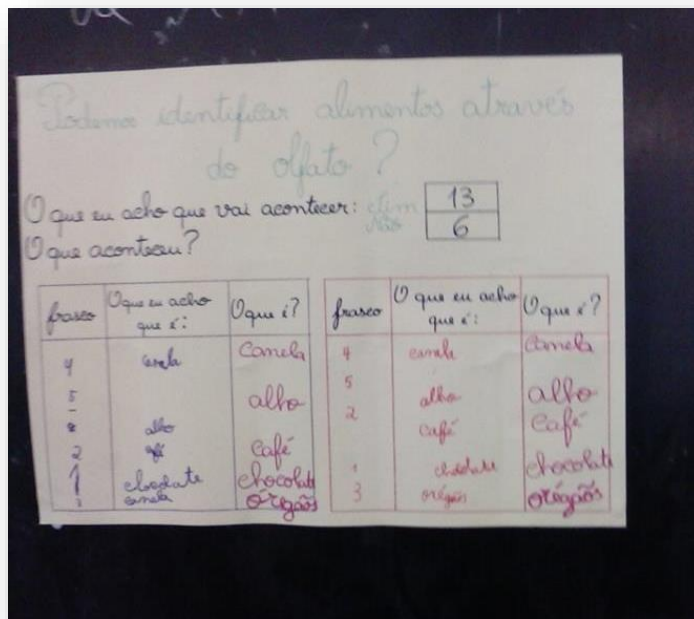 Podemos identificar alimentos através
do olfato?
O que eu acho que vai acontecer: Sim 13
Não 6
O que aconteceu?
frasco O que eu acho que é: O que é?
4 canela canela
5 alho
alho
2 café café
1 chocolate chocolate
3 canela orégãos
frasco O que eu acho que é: O que é?
4 canela canela
5 alho alho
2 café café
1 chocolate chocolate
3 orégãos orégãos